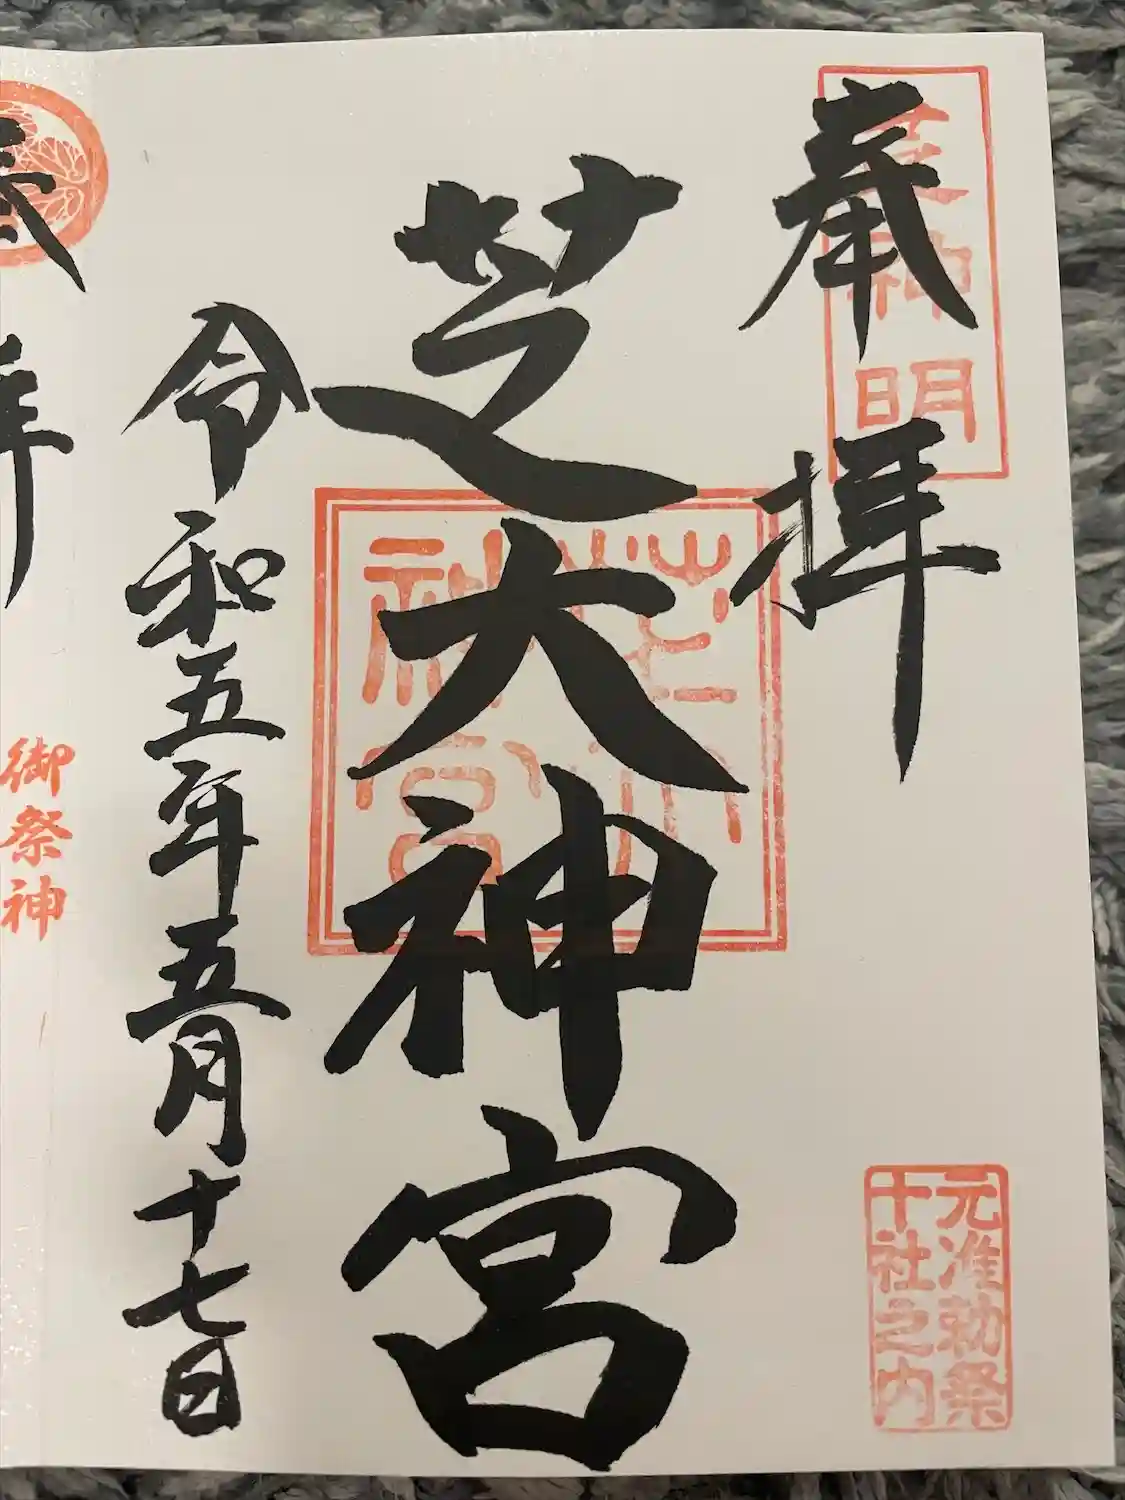 奉拝
芝神明
元准勅祭
十社之内
芝大神宮
芝大
神宮
令和五年五月十七日
奉拝
御祭神